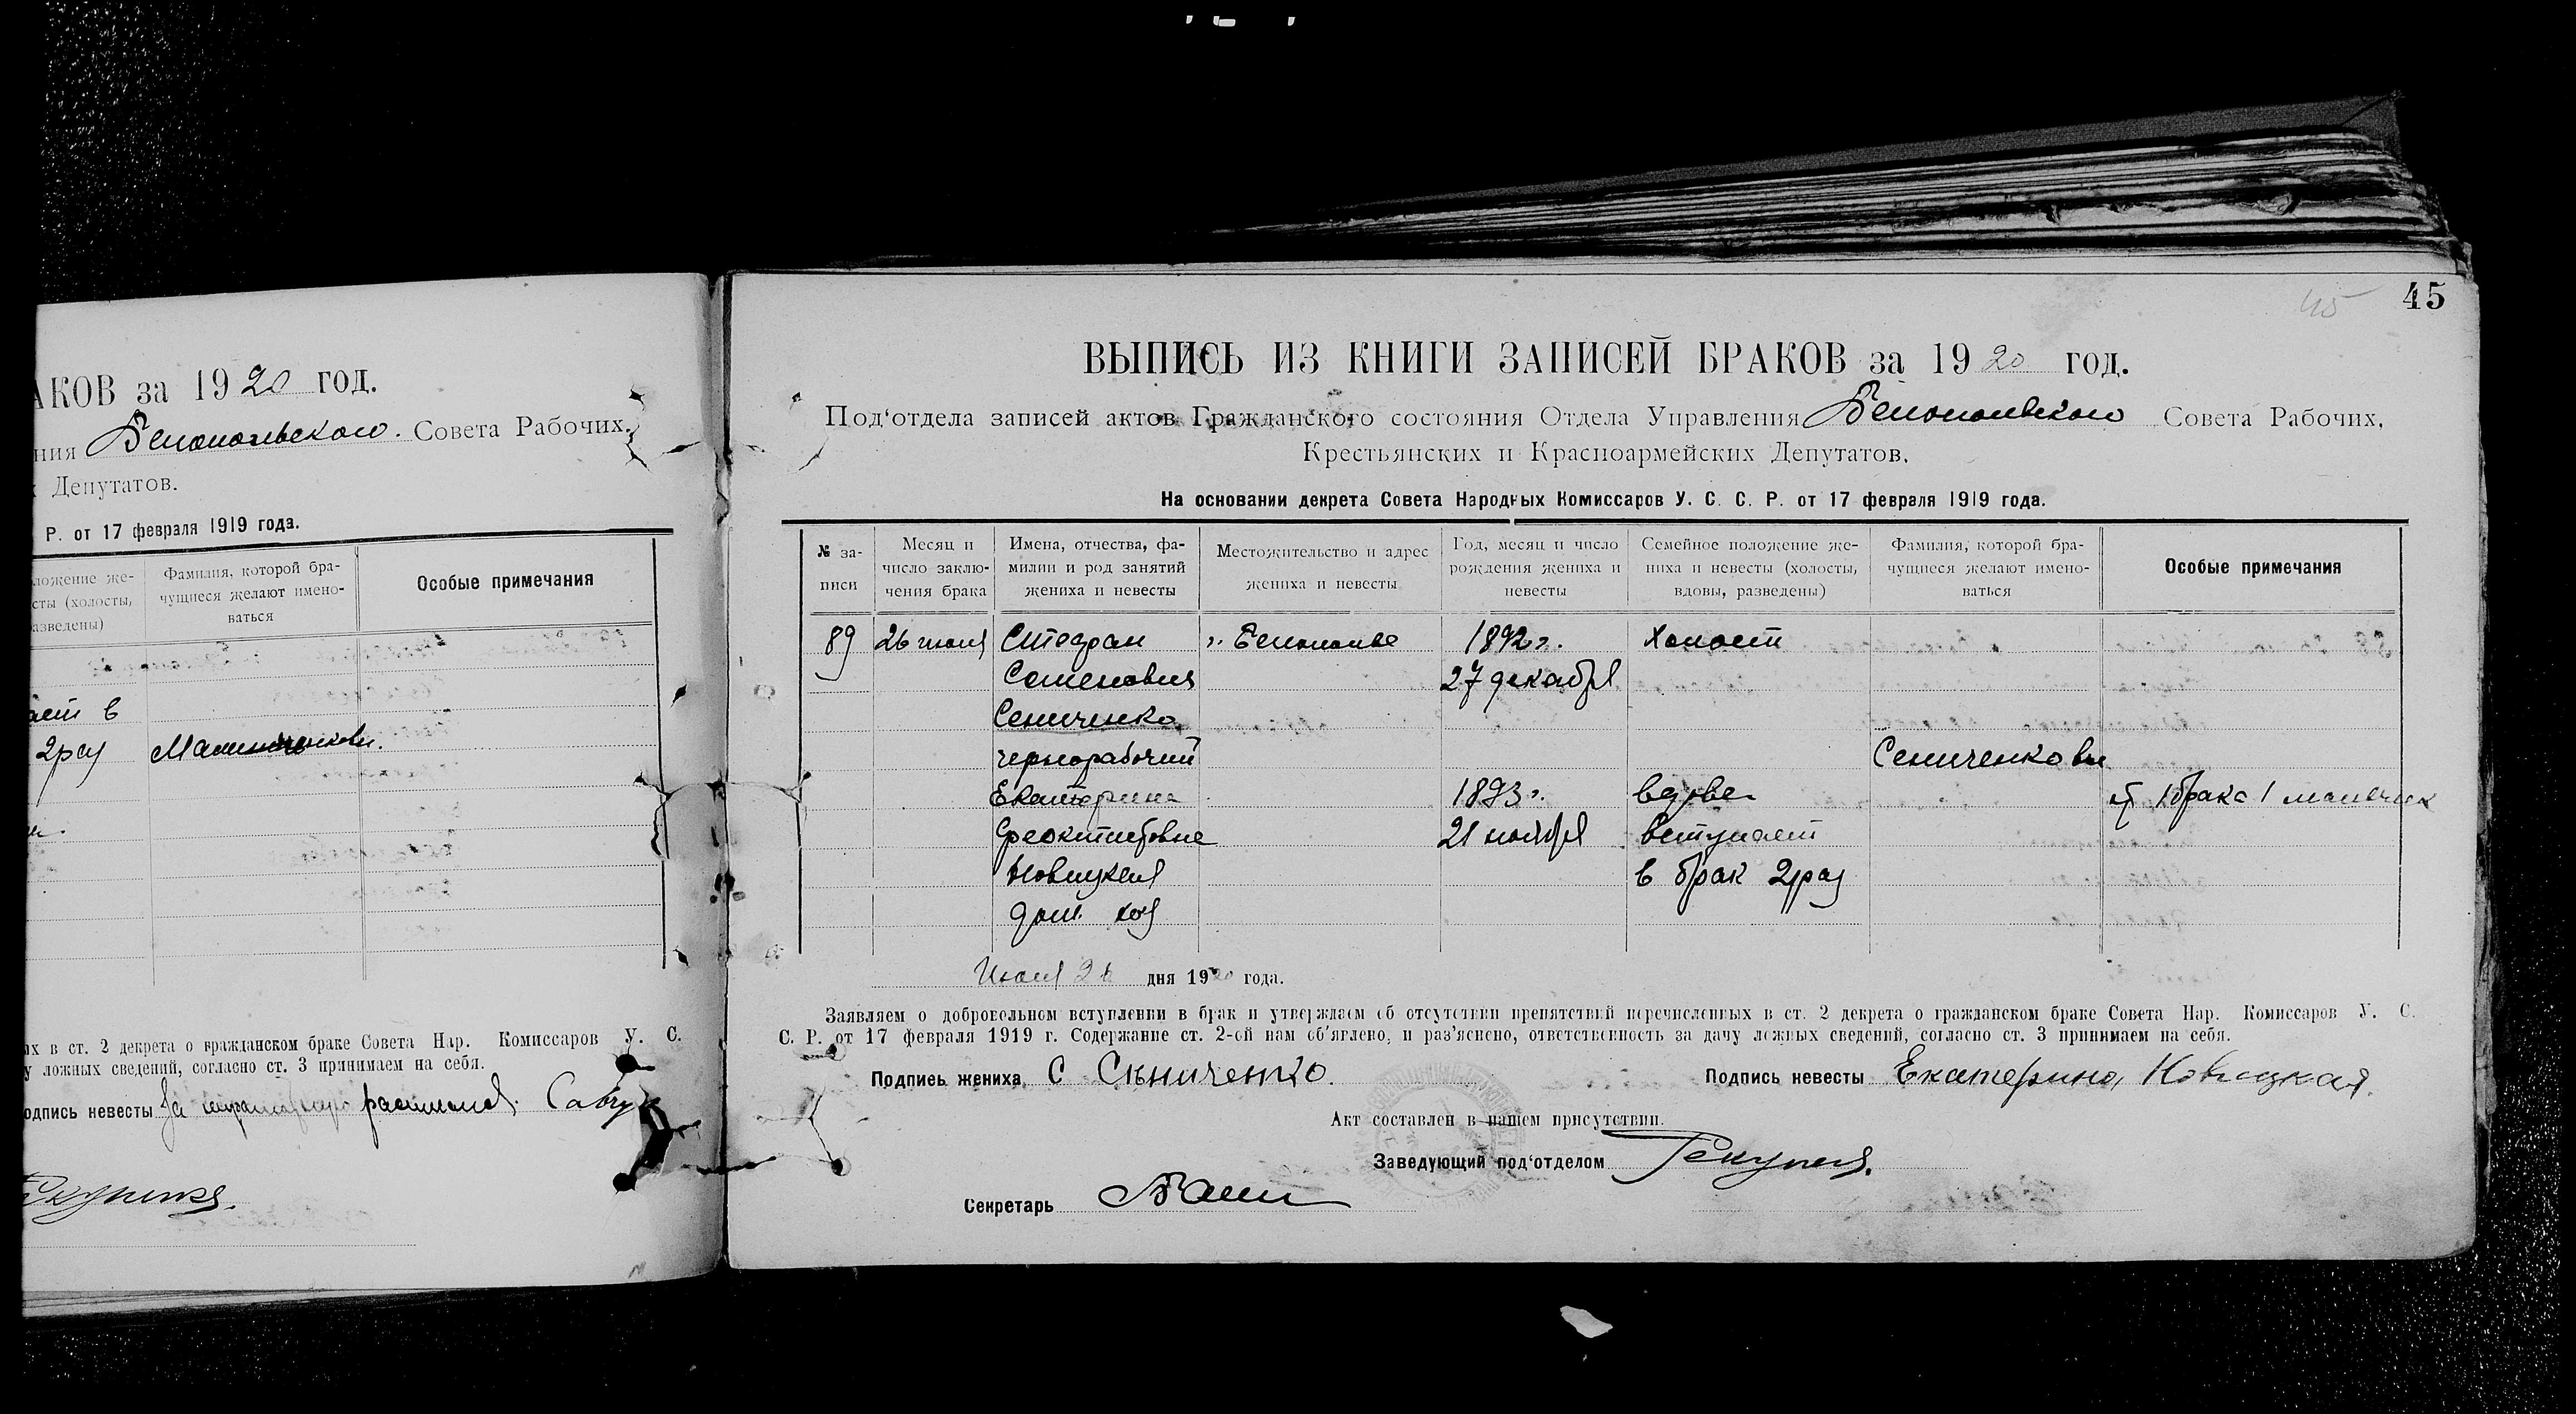 АКОВ за 1920 год.
ния Белопольского. Совета Рабочих,
Депутатов.
Р. от 17 февраля 1919 года.
ложение же-
сты (холосты,
азведены)
Фамилия, которой бра-
чущиеся желают имено-
ваться
Особые примечания
ает в
2 раз
х в ст. 2 декрета о гражданском браке Совета Нар. Комиссаров У. С.
у ложных сведений, согласно ст. 3 принимаем на себя.
одпись невесты За неграмотную расписался
45
45
ВЫПИСЬ ИЗ КНИГИ ЗАПИСЕЙ БРАКОВ за 1920 год.
Под'отдела записей актов Гражданского состояния Отдела Управления Белопольского Совета Рабочих,
Крестьянских и Красноармейских Депутатов.
На основании декрета Совета Народных Комиссаров У. С. С. Р. от 17 февраля 1919 года.
№ за-
писи
Месяц и
число заклю-
чения брака
Имена, отчества, фа-
милии и род занятий
жениха и невесты
Местожительство и адрес
жениха и невесты
Год, месяц и число
рождения жениха и
невесты
Семейное положение же-
ниха и невесты (холосты,
вдовы, разведены)
Фамилия, которой бра-
чущиеся желают имено-
ваться
Особые примечания
89 26 июля Стефан г. Белополье 1892 г. Холост
Семенович 27 декабря
Сениченко
чернорабочий Сениченковы
Екатерина 1893 г. вдова от 1 брака 1 мальчик
Феоктистовна 21 ноября вступает
Новицкая в брак 2 раз
дом. хоз
Июля 26 дня 1920 года.
Заявляем о добровольном вступлении в брак и утверждаем об отсутствии препятствий перечисленных в ст. 2 декрета о гражданском браке Совета Нар. Комиссаров У. С.
С. Р. от 17 февраля 1919 г. Содержание ст. 2-ой нам об'явлено, и раз'яснено, ответственность за дачу ложных сведений, согласно ст. 3 принимаем на себя.
Подпись жениха С Сениченко.
Подпись невесты Екатерина Новицкая.
Акт составлен в нашем присутствии.
Заведующий под'отделом
Секретарь